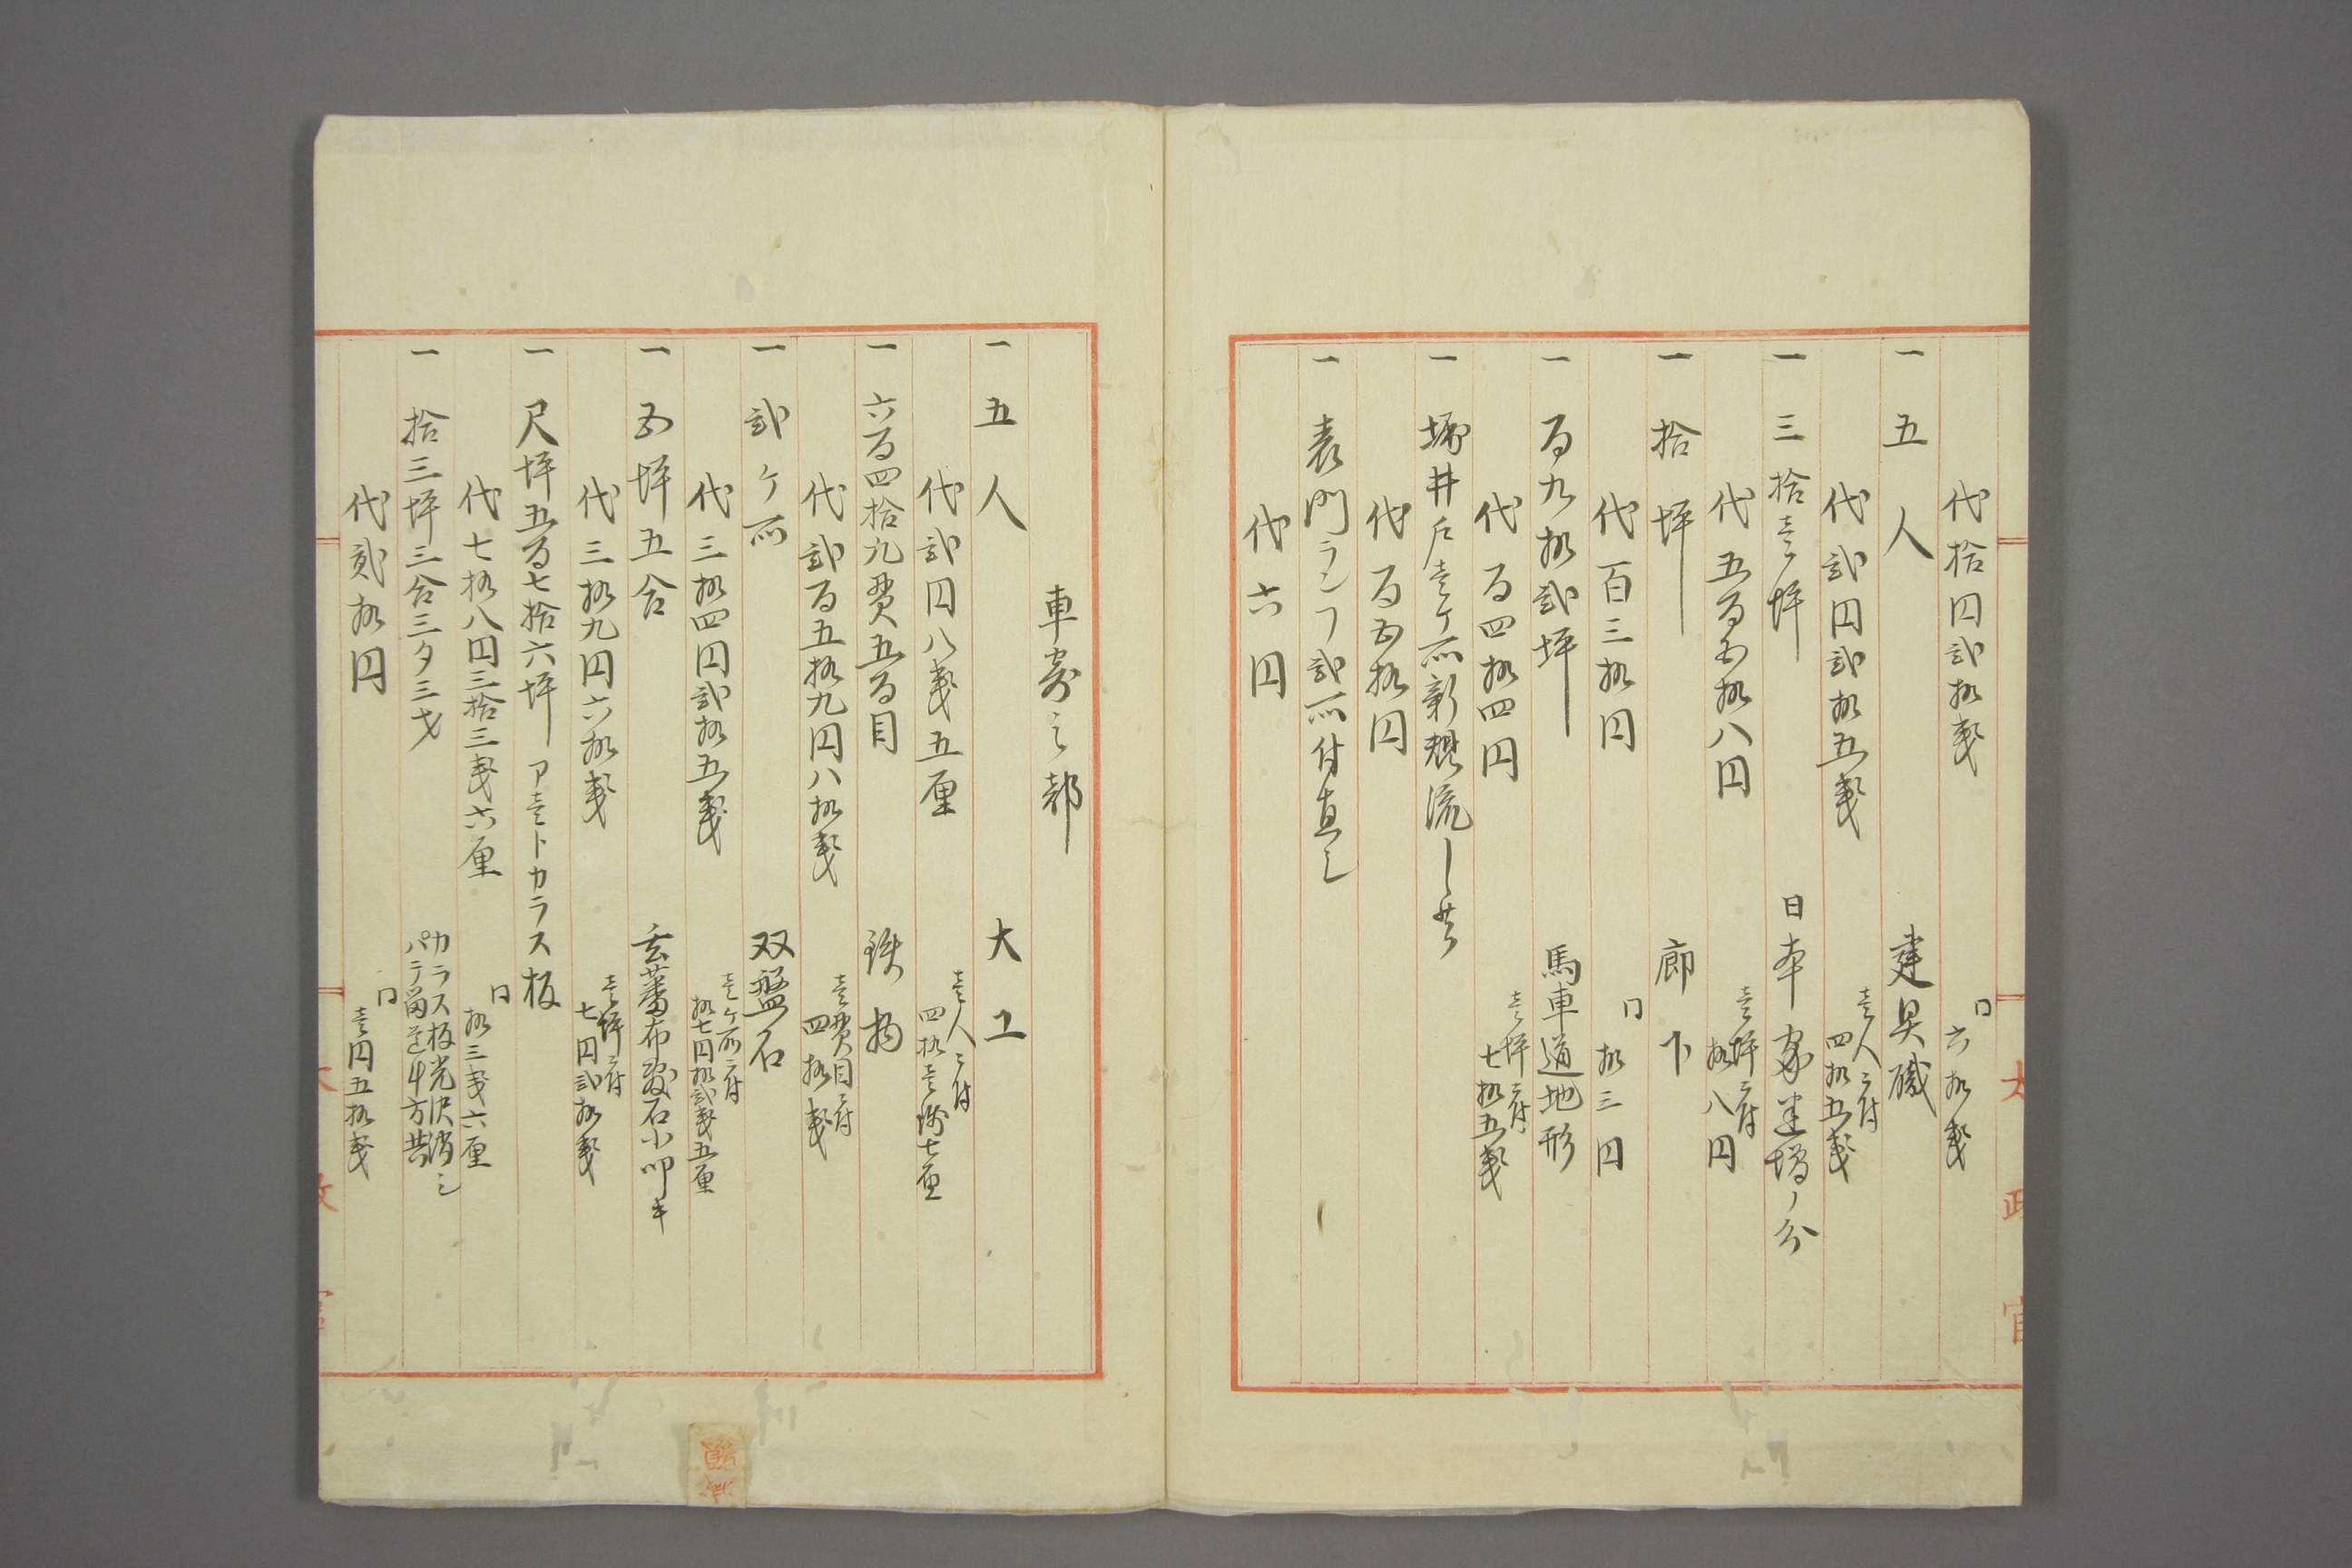 代拾円弐拾銭 同六拾銭
一 五人 建具職
代弐円弐拾五銭 壱人ニ付四拾五銭
一 三拾壱坪 日本家建増ノ分
代五百五拾八円 壱坪ニ付拾八円
一 拾坪 廊下
代百三拾円 同拾三円
一 百九拾弐坪 馬車道地形
代百四拾四円 壱坪ニ付七拾五銭
一 堀井戸壱ケ所新規流し共
代百五拾円
一 表門ランフ弐所付直シ
代六円
太政官
車寄之部
一 五人 大工
代弐円八銭五厘 壱人ニ付四拾壱銭七厘
一 六百四拾九貫五百目 鉄物
代弐百五拾九円八拾銭 壱貫目ニ付四拾銭
一 弐ケ所 双盤石
代三拾四円弐拾五銭 壱ケ所ニ付拾七円拾弐銭五厘
一 五坪五合 玄蕃布敷石小叩キ
代三拾九円六拾銭 壱坪ニ付七円弐拾銭
一 尺坪五百七拾六坪 ア壱トカラス板
代七拾八円三拾三銭六厘 同拾三銭六厘
一 拾三坪三合三夕三才 カラス板光沢消シパテ留
代貳拾円 同壱円五拾銭